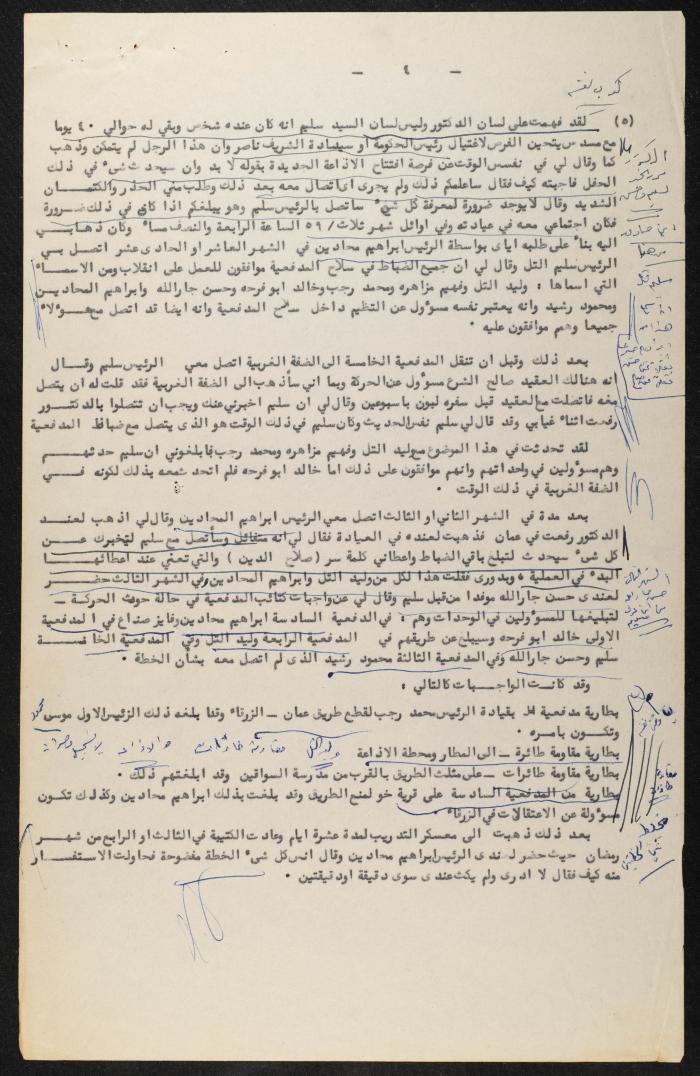 - ٤ -
(٥) لقد فهمت على لسان الدكتور وليس لسان السيد سليم انه كان عنده شخص وبقي له حوالي ٤٠ يوما
مع مسدس يتحين الفرص لاغتيال رئيس الحكومة او سيادة الشريف ناصر وان هذا الرجل لم يتمكن وذهب
كما وقال لي في نفس الوقت عن فرصة افتتاح الاذاعة الجديدة بقوله لا بد وان سيحدث شيء في ذلك
الحفل فاجبته كيف فقال ساعلمكم ذلك ولم يجرى اى اتصال معه بعد ذلك وطلب مني الحذر والكتمان
الشديد وقال لا يوجد ضرورة لمعرفة كل شيء ساتصل بالرئيس سليم وهو يبلغكم اذا كان في ذلك ضرورة
فكان اجتماعي معه في عيادته وفي اوائل شهر ثلاث/٥٩ الساعة الرابعة والنصف مساء وكان ذهابي
اليه بناء على طلبه اياى بواسطة الرئيس ابراهيم محادين في الشهر العاشر او الحادى عشر اتصل بي
الرئيس سليم التل وقال لي ان جميع الضباط في سلاح المدفعية موافقون للعمل على انقلاب ومن الاسماء
التي اسماها : وليد التل وفهيم مزاهره ومحمد رجب وخالد ابو فرحه وحسن جارالله وابراهيم المحادين
ومحمود رشيد وانه يعتبر نفسه مسؤول عن التنظيم داخل سلاح المدفعية وانه ايضا قد اتصل مع هؤلاء
جميعا وهم موافقون عليه .
بعد ذلك وقبل ان تنقل المدفعية الخامسة الى الضفة الغربية اتصل معي الرئيس سليم وقال
انه هنالك العقيد صالح الشرع مسؤول عن الحركة وبما اني سأذهب الى الضفة الغربية فقد قلت له ان يتصل
معه فاتصلت مع العقيد قبل سفره لبون باسبوعين وقال لي ان سليم اخبرني عنك ويجب ان تتصلوا بالدكتور
رفعت اثناء غيابي وقد قال لي سليم نفس الحديث وكان سليم في ذلك الوقت هو الذى يتصل مع ضباط المدفعية
لقد تحدثت في هذا الموضوع مع وليد التل وفهيم مزاهره ومحمد رجب فابلغوني ان سليم حدثهم
وهم مسؤولين في واحداتهم وانهم موافقون على ذلك اما خالد ابو فرحه فلم اتحدث معه بذلك لكونه في
الضفة الغربية في ذلك الوقت .
بعد مدة في الشهر الثاني او الثالث اتصل معي الرئيس ابراهيم المحادين وقال لي اذهب لعند
الدكتور رفعت في عمان فذهبت لعنده في العيادة فقال لي انه متفائل وسأتصل مع سليم ليخبرك عن
كل شيء سيحدث لتبلغ باقي الضباط واعطاني كلمة سر ( صلاح الدين ) والتي تعني عند اعطائها
البدء في العملية وبدورى فقلت هذا لكل من وليد التل وابراهيم المحادين وفي الشهر الثالث حضر
لعندى حسن جارالله موفدا من قبل سليم وقال لي عن واجبات كتائب المدفعية في حالة حدوث الحركة -
لتبليغها للمسؤولين في الوحدات وهم : في المدفعية السادسة ابراهيم محادين وفايز صداع في المدفعية
الاولى خالد ابو فرحه وسيبلغ عن طريقهم في المدفعية الرابعة وليد التل وفي المدفعية الخامسة
سليم وحسن جارالله وفي المدفعية الثالثة محمود رشيد الذى لم اتصل معه بشأن الخطة .
وقد كانت الواجبات كالتالي :
بطارية مدفعية بقيادة الرئيس محمد رجب لقطع طريق عمان - الزرقاء وقد ابلغه ذلك الرئيس الاول موسى
وتكون بامره .
بطارية مقاومة طائرة - الى المطار ومحطة الاذاعة
بطارية مقاومة طائرات - على مثلث الطريق بالقرب من مدرسة السواقين وقد ابلغتهم ذلك .
بطارية من المدفعية السادسة على قرية خو لمنع الطريق وقد بلغت بذلك ابراهيم محادين وكذلك تكون
مسؤولة عن الاعتقالات في الزرقاء .
بعد ذلك ذهبت الى معسكر التدريب لمدة عشرة ايام وعادت الكتيبة في الثالث او الرابع من شهر
رمضان حيث حضر لعندى الرئيس ابراهيم محادين وقال انس كل شيء الخطة مفضوحة فحاولت الاستفسار
منه كيف فقال لا ادرى ولم يكث عندى سوى دقيقة او دقيقتين .